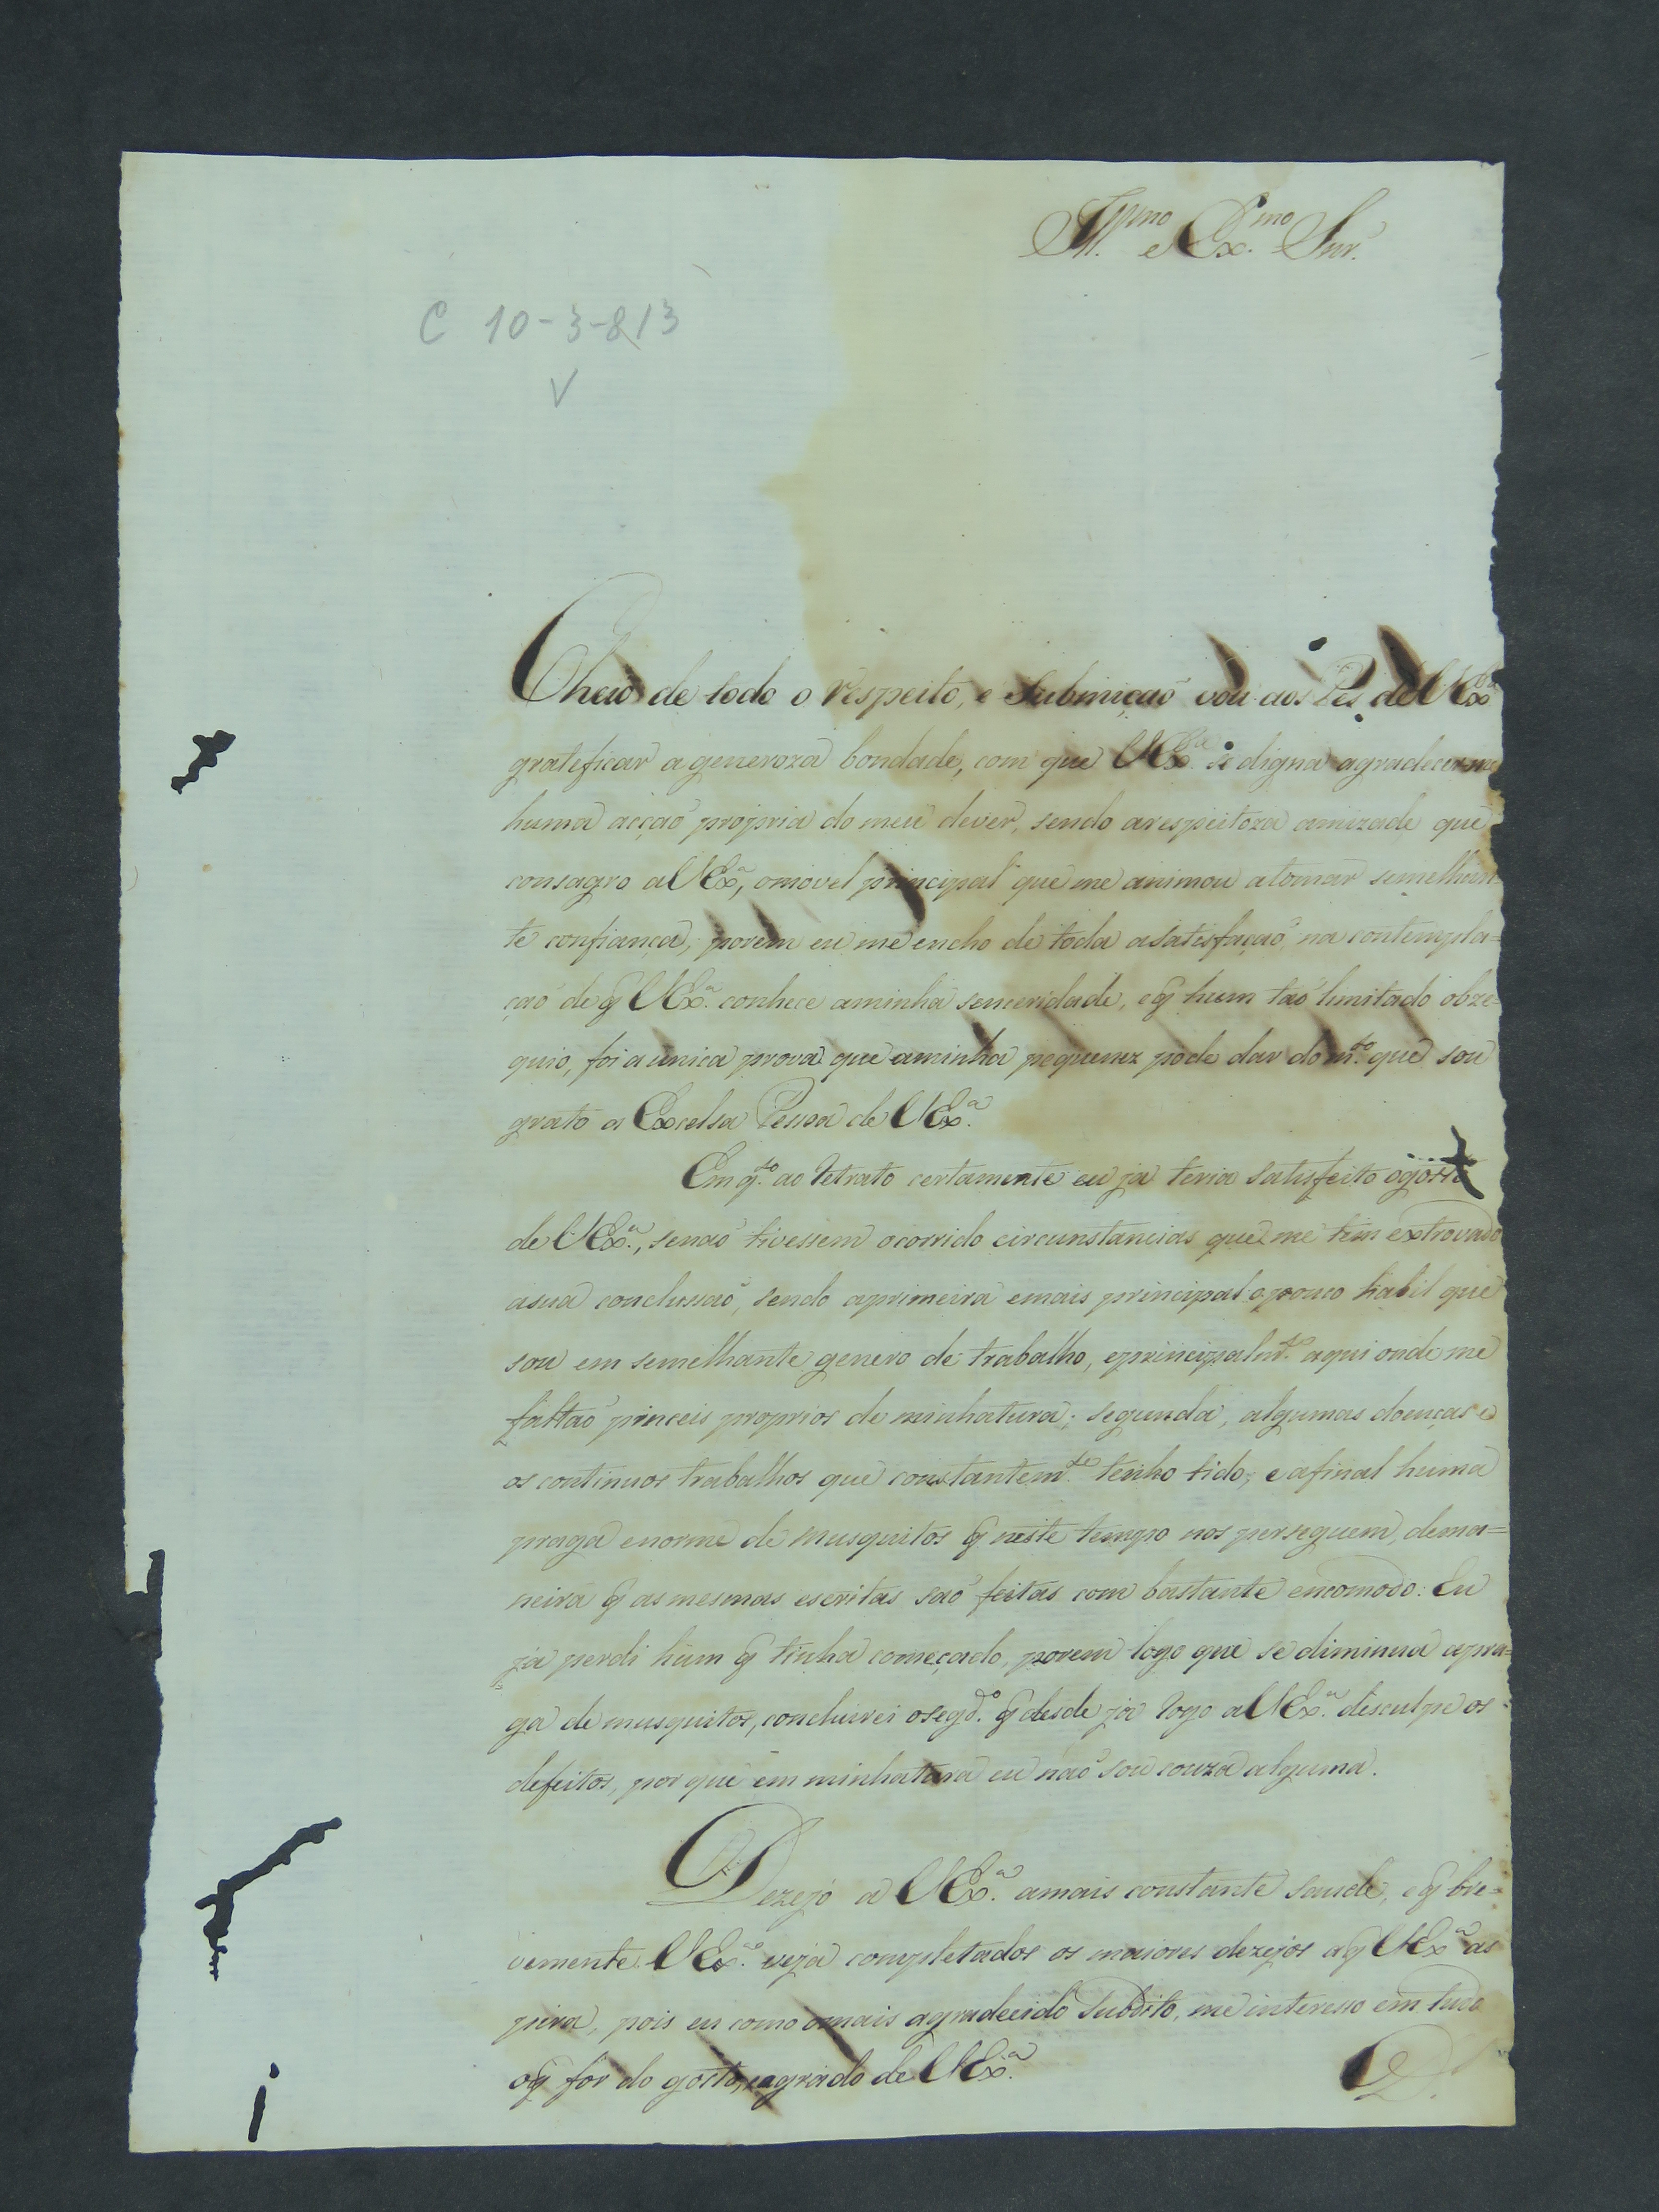 Ill.mo e Ex.mo Snr.
C 10-3-813
V
Cheio de todo o respeito, e Submição vou aos Pés de VEx.a
gratificar a generoza bondade, com que VEx.a se digna agradecer-me
huma acção propria do meu dever, sendo arespeitoza amizade que
consagro a VEx.a, omovel principal que me animou atomar semelhan-
te confiança, porem eu me encho de toda asatisfação, na contempla=
ção de q̃ VEx.a conhece aminha senceridade, eq̃ hum tão limitado obze=
quio, foi a unica prova que aminha pequenez pode dar do m.to que sou
grato a Excelsa Pessoa de VEx.a
Em q.to ao Retrato certamente eu ja teria satisfeito ogosto
de VEx.a, senão tivessem ocorrido circunstancias que me tem extrovado
asua conclusão, sendo aprimeira emais principal opouco habil que
sou em semelhante genero de trabalho, eprincipalm.te aqui onde me
faltão pinceis proprios de minhatura; segunda, algumas doenças e
os continuos trabalhos que constantem.te tenho tido; e afinal huma
praga enorme de musquitos q̃ neste tempo nos perseguem, dema=
neira q̃ as mesmas escritas são feitas com bastante encomodo: Eu
ja perdi hum q̃ tinha começado, porem logo que se diminua apra=
ga de musquitos, concluirei osegd.o q̃ desde ja rogo a VEx.a desculpe os
defeitos, por que em minhatura eu não sou couza alguma.
Dezejo a VEx.a amais constante saude, eq̃ bre=
vemente VEx.a veja completados os maiores dezejos aq̃ VEx.a as
pira, pois eu como omais agradecido Subdito, me interesso em tudo
oq̃ for do gosto, eagrado de VEx.a
D.